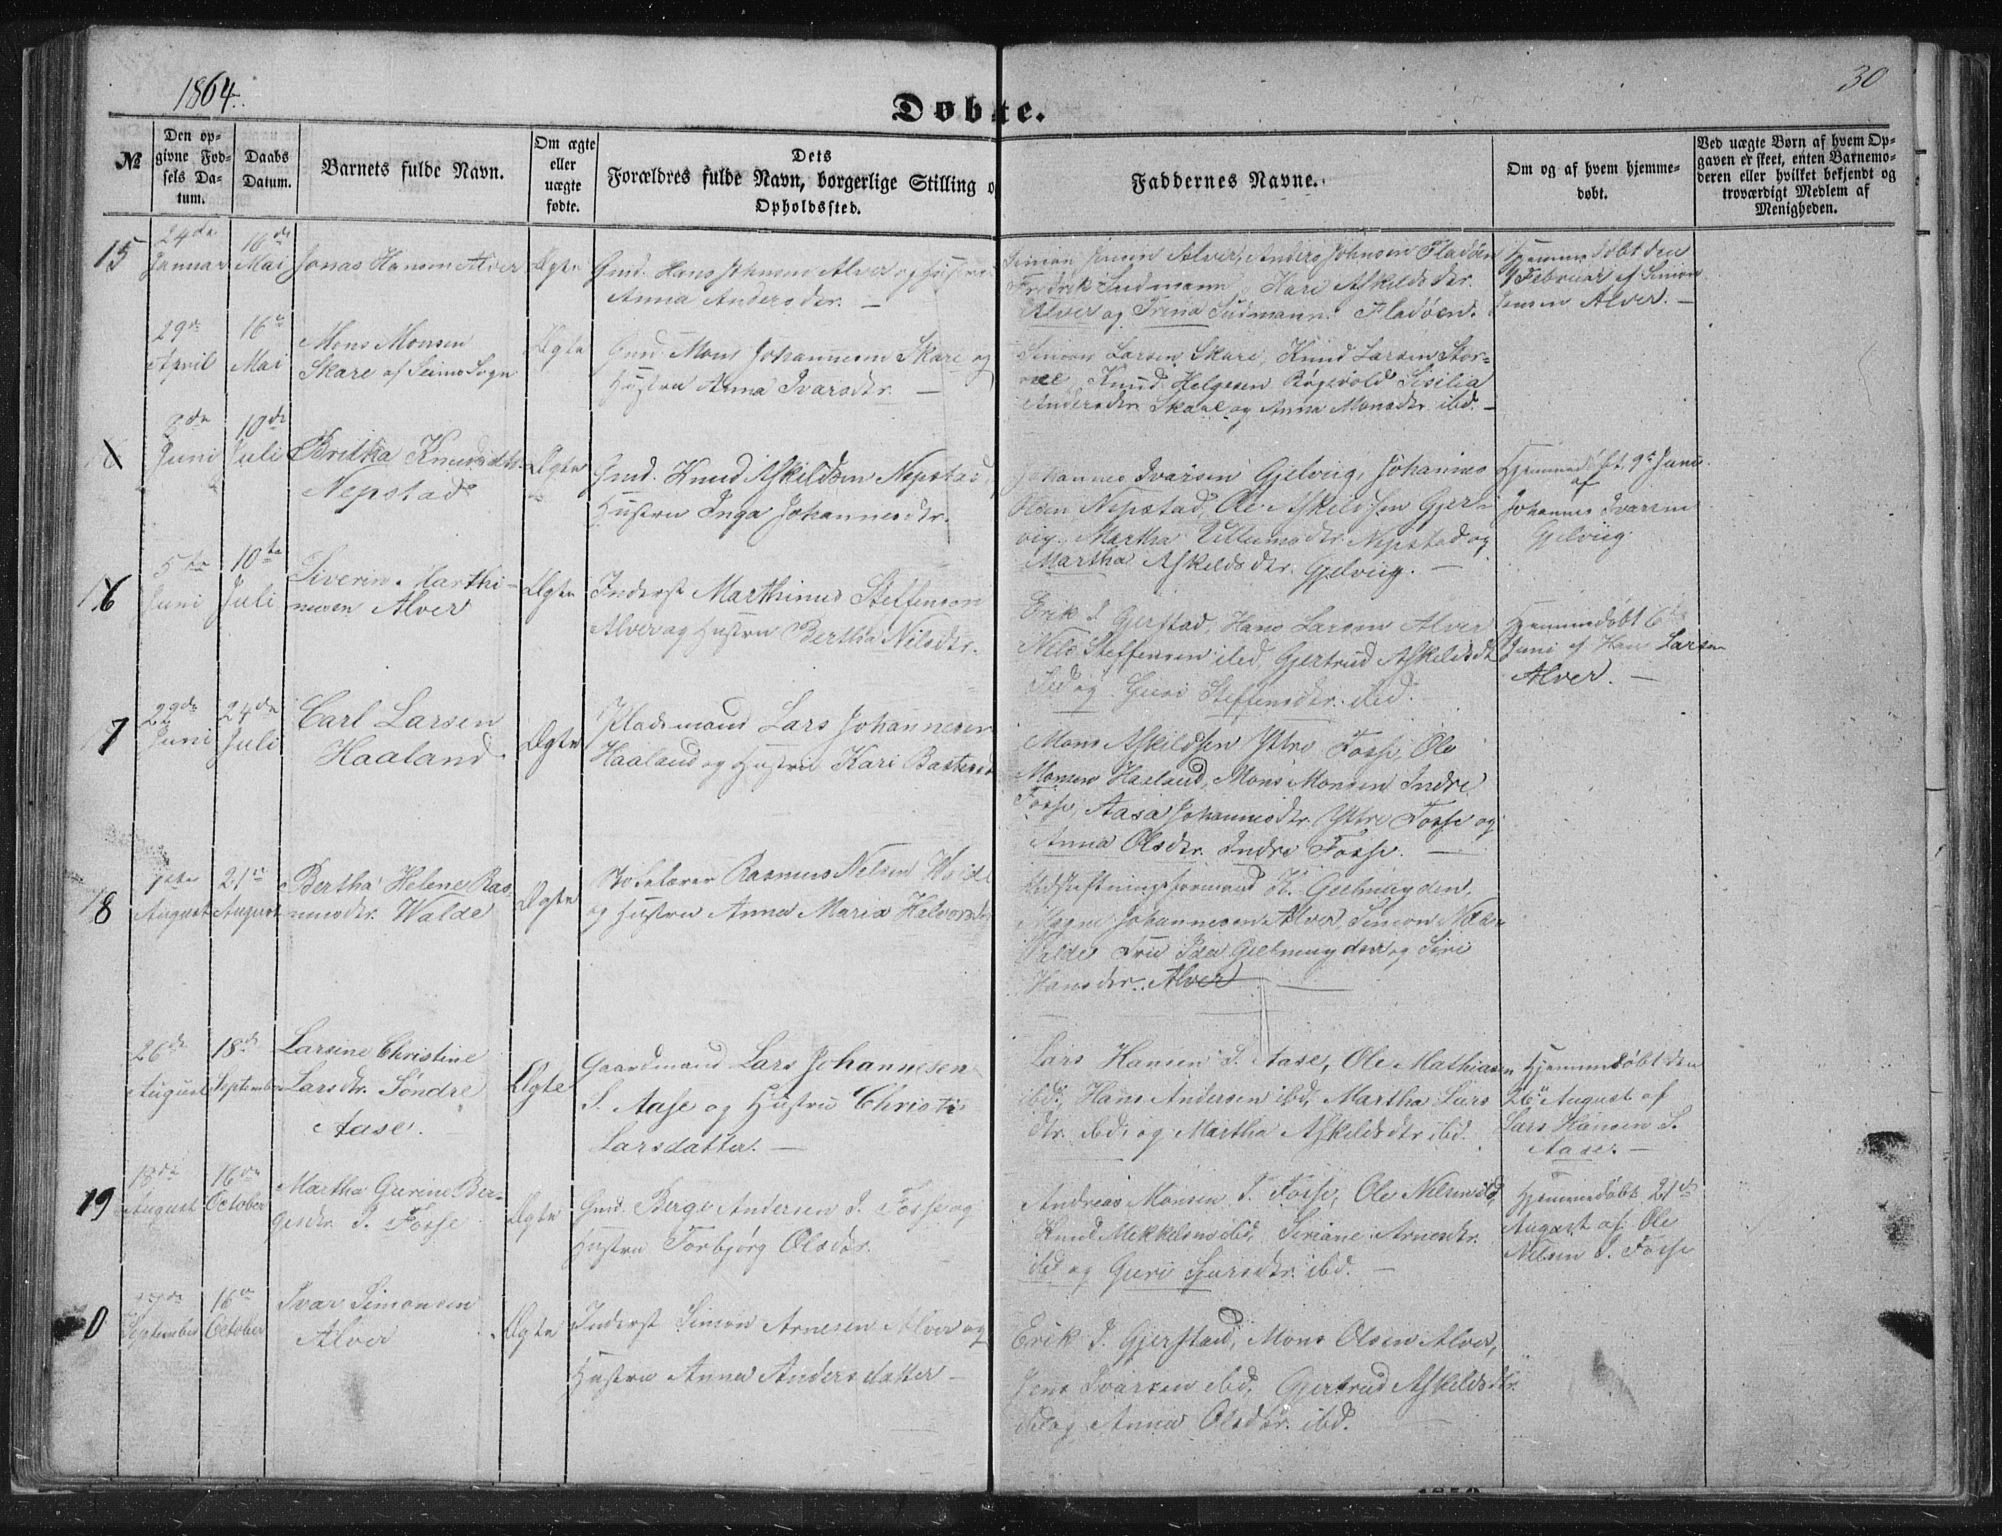 1864.
30
Døbte.
№
Den op-
givne Fød-
sels Da-
tum.
Daabs
Datum.
Barnets fulde Navn.
Om ægte
eller
uægte
fødte.
Dets
Forældres fulde Navn, borgerlige Stilling o
Opholdssted.
Faddernes Navne.
Om og af hvem hjemme-
døbt.
Ved uægte Børn af hvem Op-
gaven er skeet, enten Barnemo-
deren eller hvilket bekjendt og
troværdigt Medlem af
Menigheden.
15
24de
Januar
16de
Mai
Jonas Hansen Alver
Ægte
Gmd. Hans Johnsen Alver og Hustru
Anna Andersdtr. —
Simon Jensen Alver, Anders Johnsen Fladøen
Fredrik Sudmann, Kari Askildsdtr.
Alver og Trina Sudmann Fladøen.
Hjemmedøbt den
9 Februar af Simon
Jensen Alver. —
29de
April
16de
Mai
Mons Monsen
Skare af Seims Sogn
Ægte
Gmd. Mons Johannesen Skare og
Hustru Anna Ivarsdtr. —
Simon Larsen Skare, Knud Larsen Stor-
Knud Helgesen Røgevold Sisilia
Andersdtr Skare og Anna Monsdtr ibd. —
8de
Juni
10de
Juli
Britha Knudsdtr.
Nepstad
Ægte
Gmd. Knud Askildsen Nepstad
Hustru Inga Johannesdtr.
Johannes Ivarsen Gjelvig, Johannes
Olsen Nepstad, Ole Askildsen Gjel-
vig, Martha Villumsdtr. Nepstad og
Martha Askildsdtr. Gjelvig. —
Hjemmedøbt 9de Juni
af
Johannes Ivarsen
Gjelvig
16
5te
Juni
10te
Juli
Siverin Marthi-
nusen Alver
Ægte
Inderst Marthinus Steffensen
Alver og Hustru Bertha Nilsdtr.
Erik I. Gjerstad, Hans Larsen Alver
Nils Steffensen ibd, Gjertrud Askildsdtr
ibd og Guri Steffensdtr. ibd.
Hjemmedøbt 6te
Juni af Hans Larsen
Alver. —
17
22de
Juni
24de
Juli
Carl Larsen
Haaland
Ægte
Pladsmand Lars Johannesen
Haaland og Hustru Kari
Mons Askildsen Yttre Fosse, Ole
Monsen Haaland, Mons Monsen Indre
Fosse, Aasa Johannesdtr. Yttre Fosse og
Anna Olsdtr. Indre Fosse. —
18
1ste
August
21de
August
Bertha Helene Ras-
musdtr. Walde
Ægte
Skolelærer Rasmus Nilsen Walde
og Hustru Anna Maria Halvorsdtr
Udskiftningsformand H. Geelmuyden,
Magne Johannesen Alver, Simon
Walde Fru Ida Geelmuyden og Siri
Hansdtr. Alver —
26de
August
18de
September
Larsine Christine
Larsdtr. Søndre
Aase.
Ægte
Gaardmand Lars Johannesen
S. Aase og Hustru Christi
Larsdatter. —
Lars Hansen S. Aase, Ole Mathiasen
ibd., Hans Andersen ibd, Martha Lars
dtr. ibd, og Martha Askildsdtr ibd.
Hjemmedøbt den
26de August af
Lars Hansen S.
Aase. —
19
18de
August
16de
October
Martha Gurine Ber-
gesdtr. I. Fosse
Ægte
Gmd. Berge Andersen I. Fosse og
Hustru Torbjørg Olsdtr.
Andreas Monsen I. Fosse, Ole Nilsen ibd,
Knud Mikkelsen ibd, Siriane Arnesdtr.
ibd og Guri Larsdtr. ibd. —
Hjemmedøbt 21de
August af Ole
Nilsen I. Fosse
0
September
16de
October
Ivar Simonsen
Alver
Ægte
Inderst Simon Arnesen Alver og
Hustru Anna Andersdatter —
Erik I. Gjerstad, Mons Olsen Alver,
Jens Ivarsen ibd, Gjertrud Askildsdtr.
ibd og Anna Olsdtr. ibd.